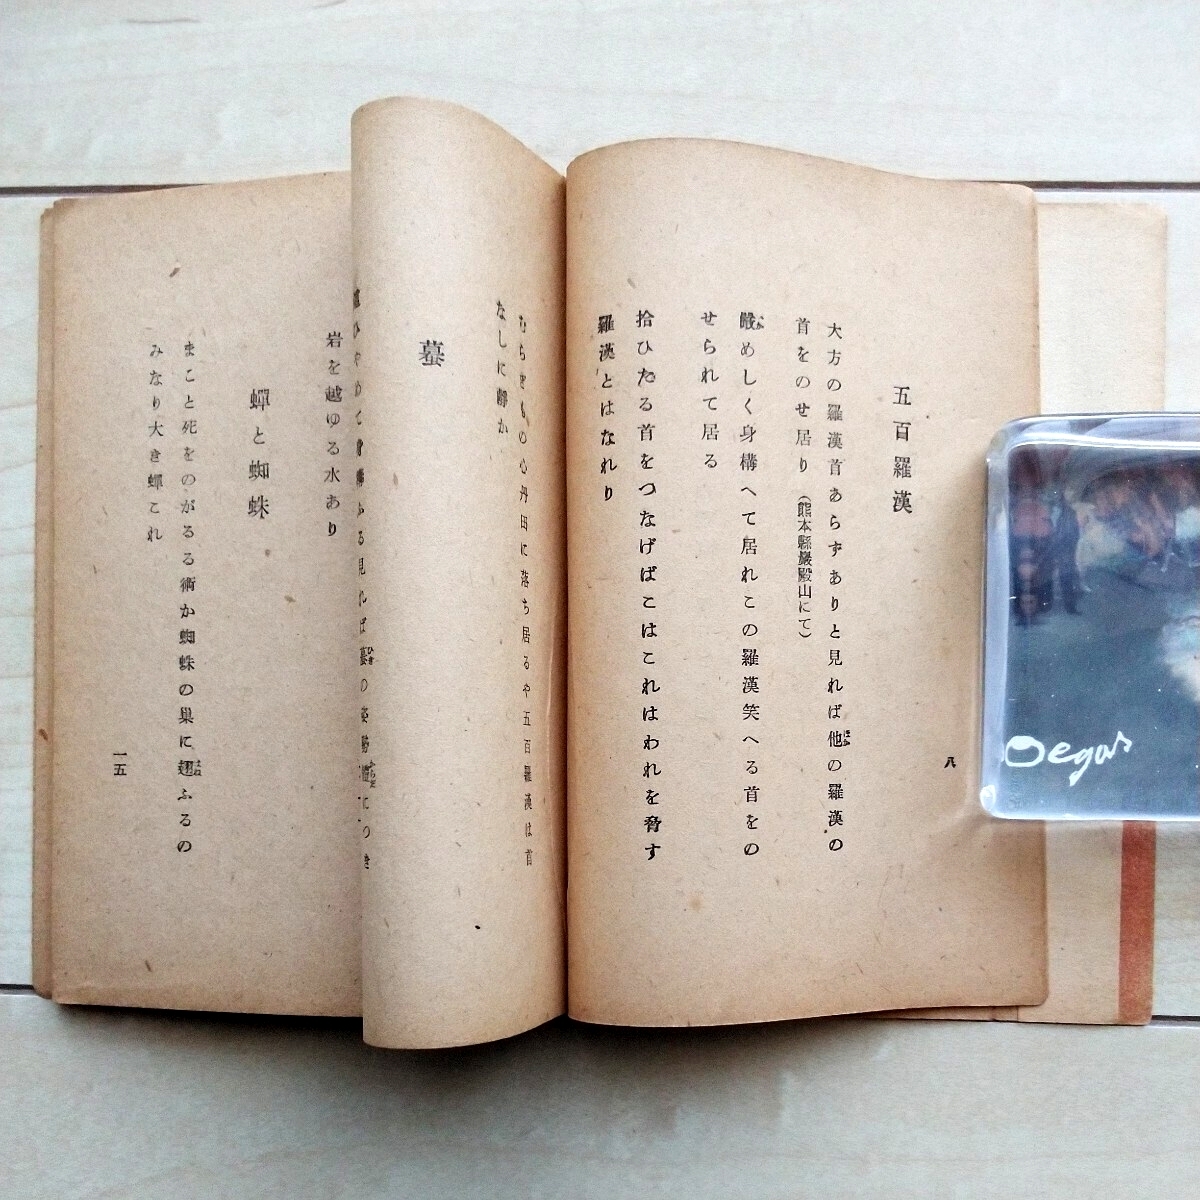 五百羅漢
大方の羅漢首あらずありと見れば他の羅漢の
ほか
首をのせ居り(熊本縣巖殿山にて)
めしく身構へて居れこの羅漢笑へる首をの
せられて居る
拾ひたる首をつなげばこはこれはわれを脅す
羅漢とはなれり
八
むらぎもの心丹田に落ち居るや五百羅漢は首
なしに靜か
蟇
見れば蟇の姿勢
ひき
からだ
につき
岩を越ゆる水あり
蟬と蜘蛛
まこと死をのがるる術か蜘蛛の巢に翅ふるの
はね
みなり大き蟬これ
一五
Degas